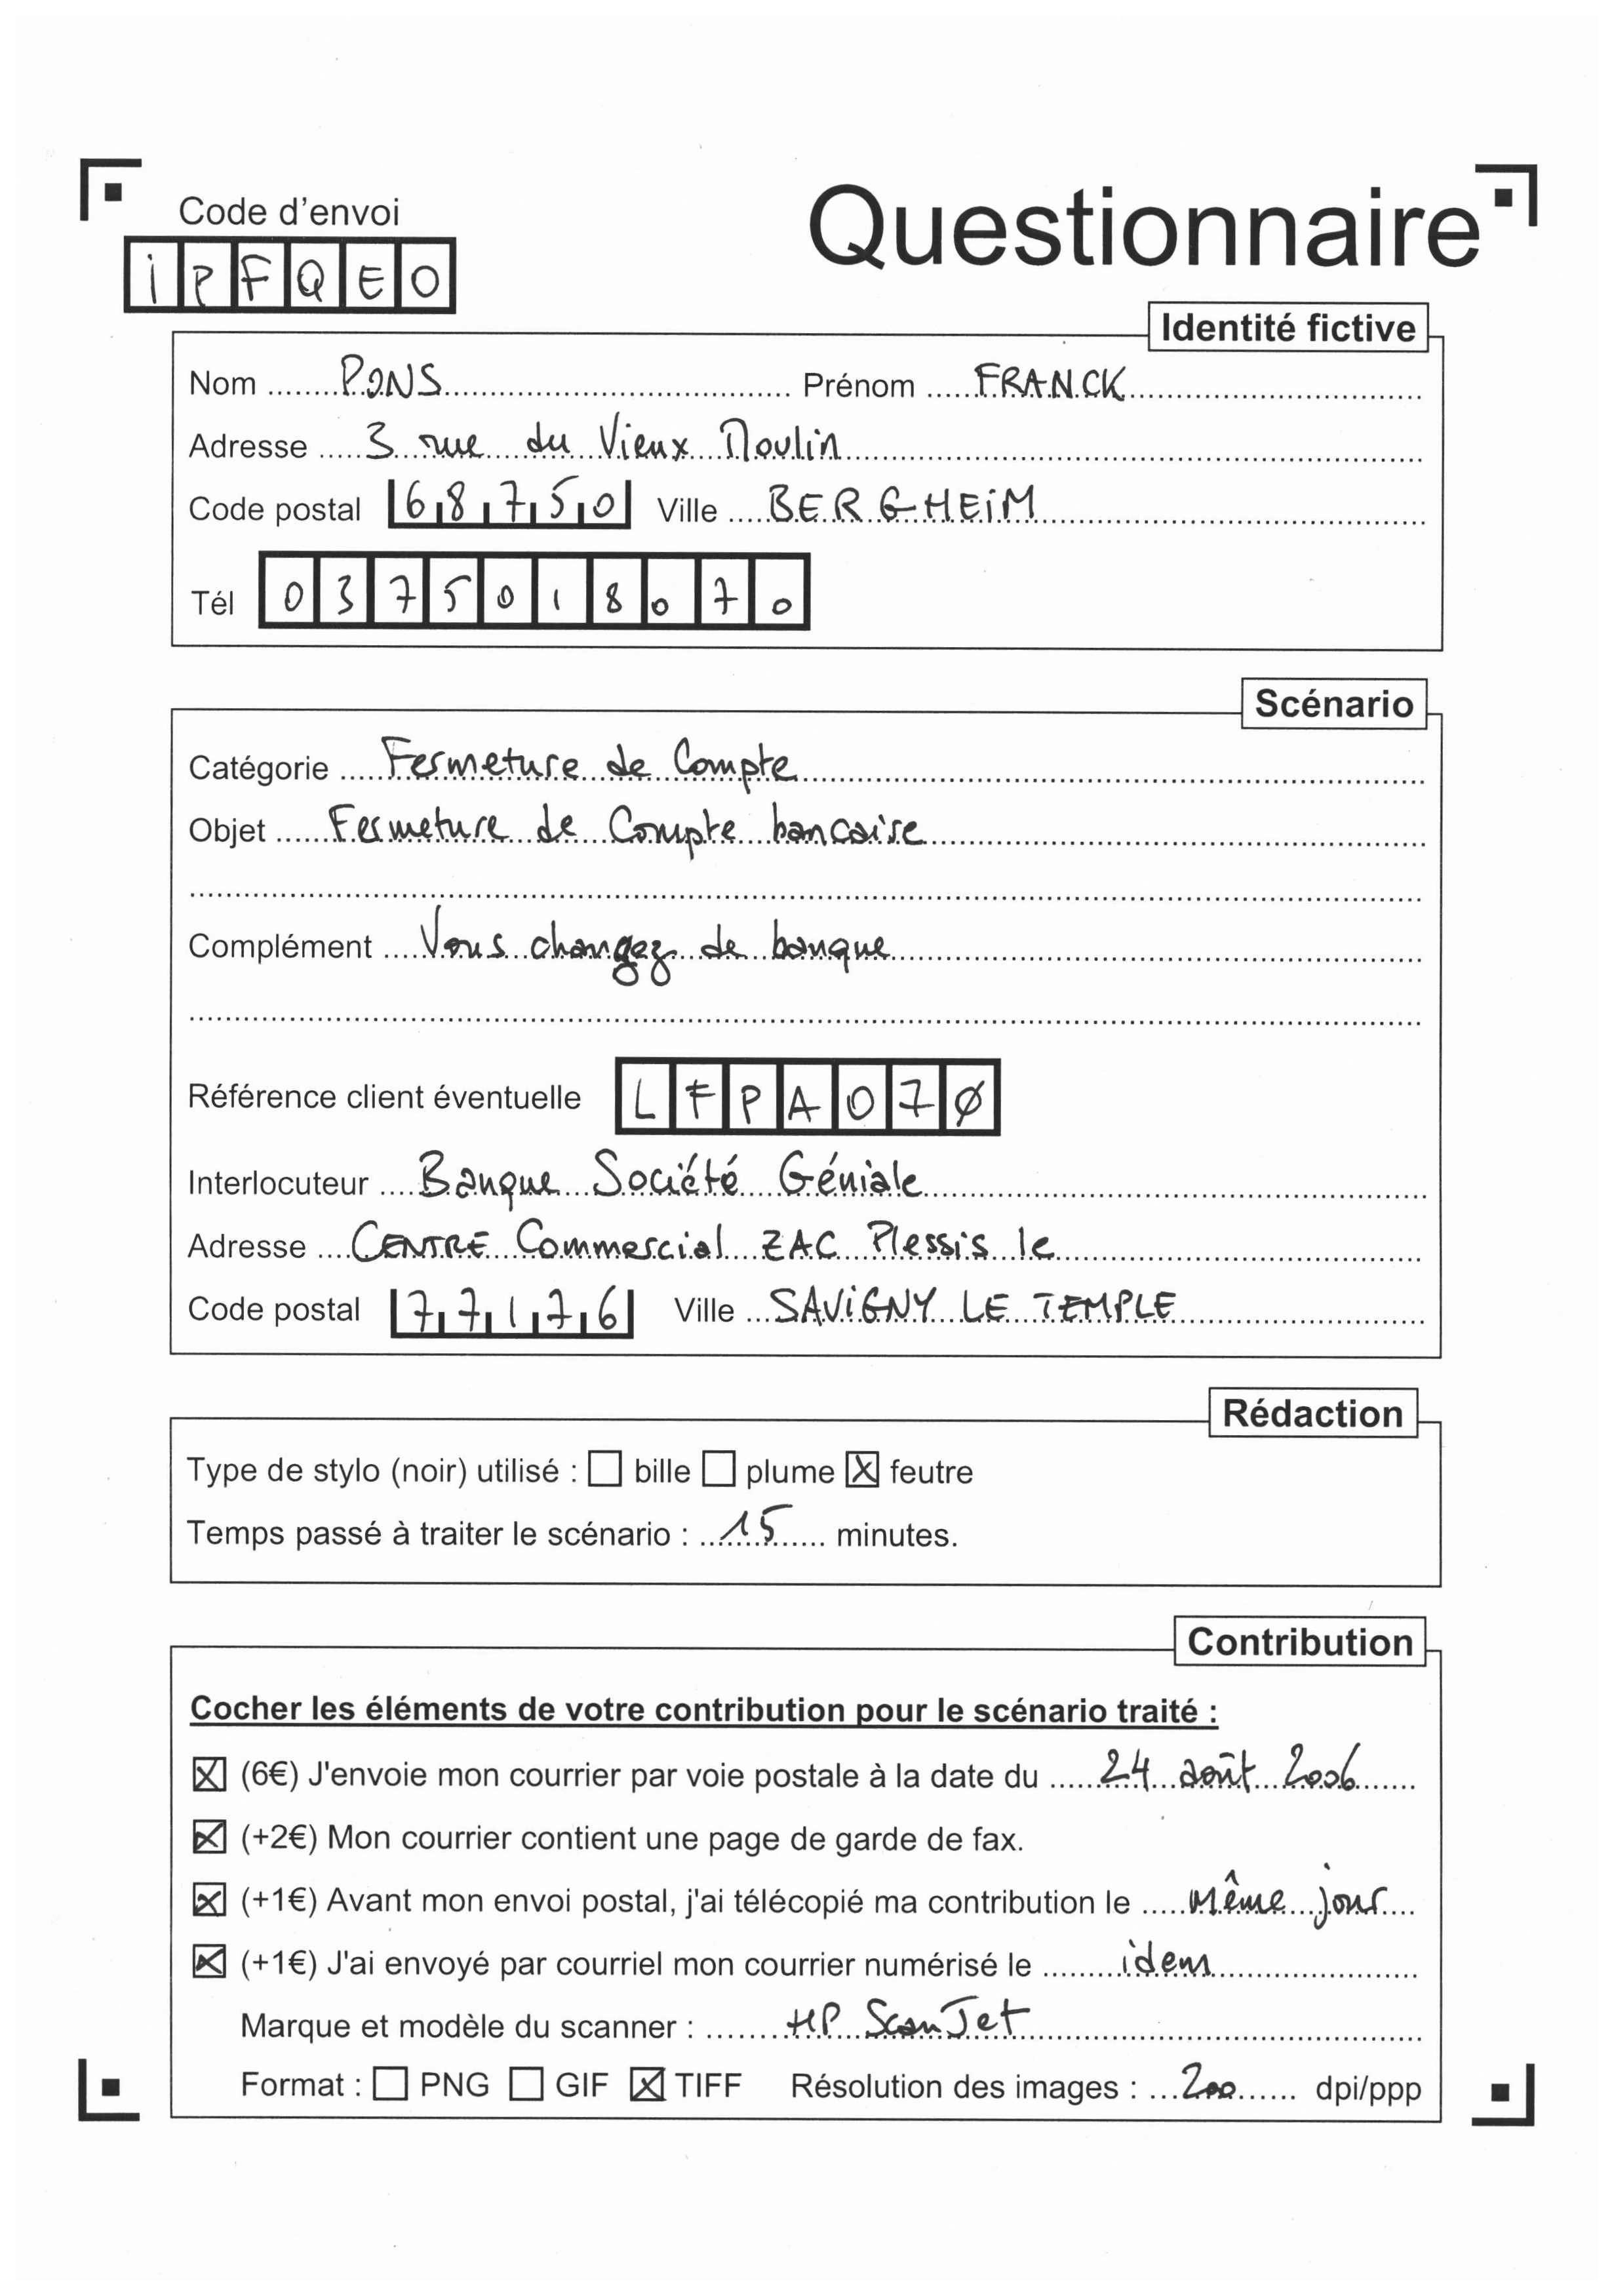 Code d'envoi
Questionnaire
iPFQEO
Identité fictive
Nom PONS Prénom FRANCK
Adresse 3 rue du Vieux Moulin
Code postal 68750 Ville BERGHEiM
Tél 0375018070
Scénario
Catégorie Fermeture de Compte
Objet Fermeture de Compte bancaire
Complément Vous changez de banque
Référence client éventuelle LFPA070
Interlocuteur Banque Société Géniale
Adresse CENTRE Commercial ZAC Plessis le
Code postal 77176 Ville SAViGNY LE TEMPLE
Rédaction
Type de stylo (noir) utilisé : ☐ bille ☐ plume ☒ feutre
Temps passé à traiter le scénario : 15 minutes.
Contribution
Cocher les éléments de votre contribution pour le scénario traité :
☒ (6€) J'envoie mon courrier par voie postale à la date du 24 août 2006
☒ (+2€) Mon courrier contient une page de garde de fax.
☒ (+1€) Avant mon envoi postal, j'ai télécopié ma contribution le même jour
☒ (+1€) J'ai envoyé par courriel mon courrier numérisé le idem
Marque et modèle du scanner : HP ScanJet
Format : ☐ PNG ☐ GIF ☒ TIFF Résolution des images : 200 dpi/ppp